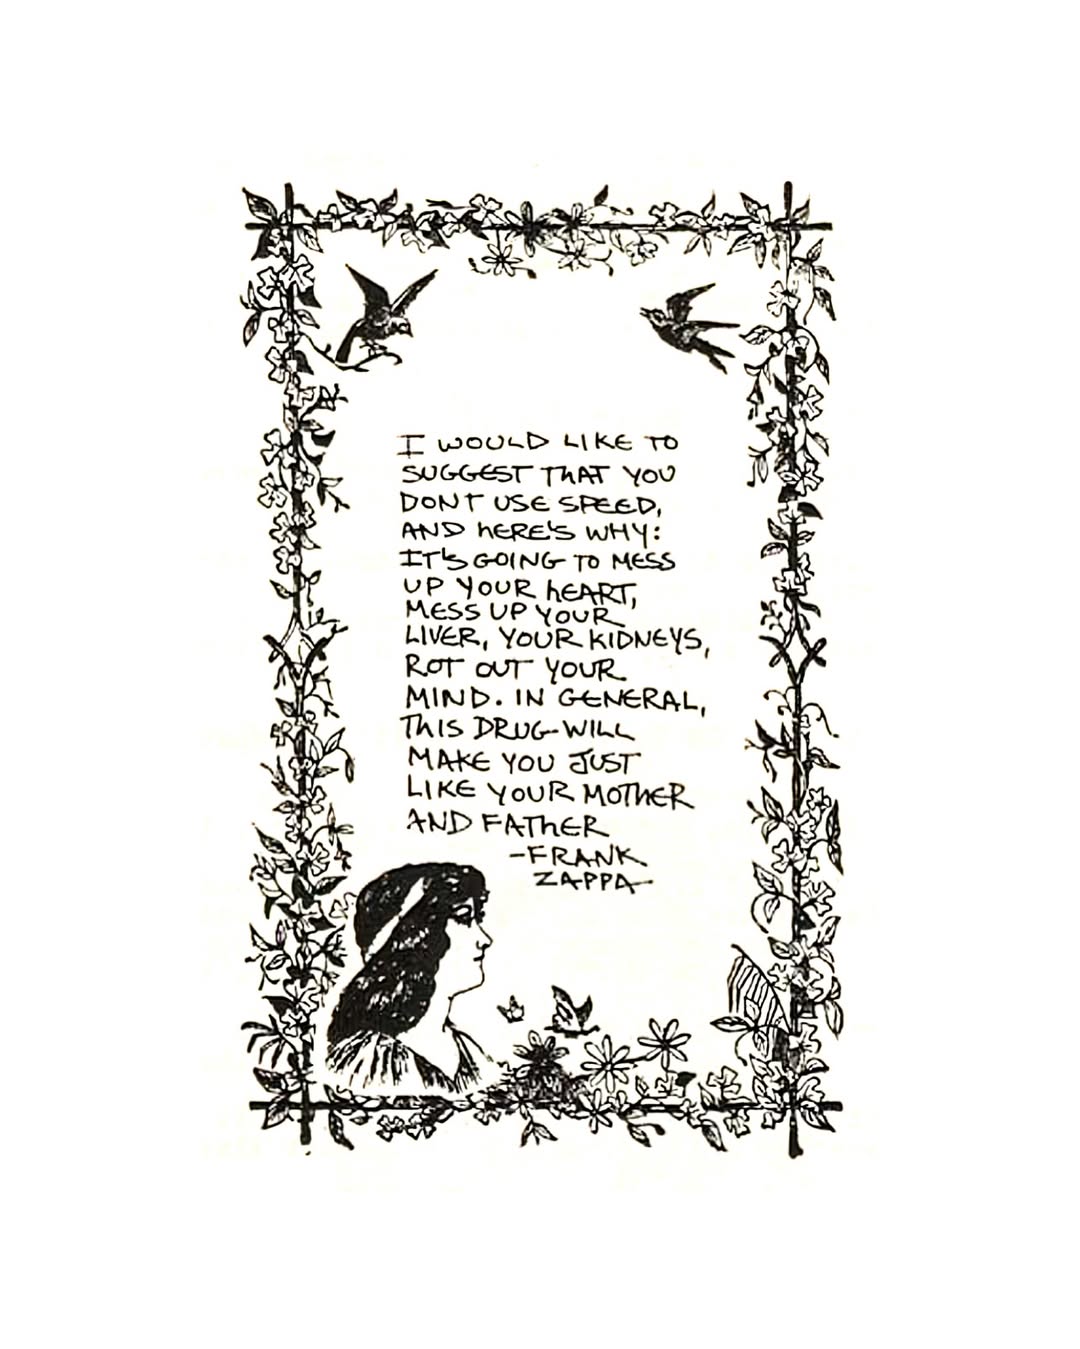 I WOULD LIKE TO
SUGGEST THAT YOU
DONT USE SPEED,
AND HERE'S WHY:
IT'S GOING TO MESS
UP YOUR HEART,
MESS UP YOUR
LIVER, YOUR KIDNEYS,
ROT OUT YOUR
MIND. IN GENERAL,
THIS DRUG WILL
MAKE YOU JUST
LIKE YOUR MOTHER
AND FATHER
-FRANK
ZAPPA